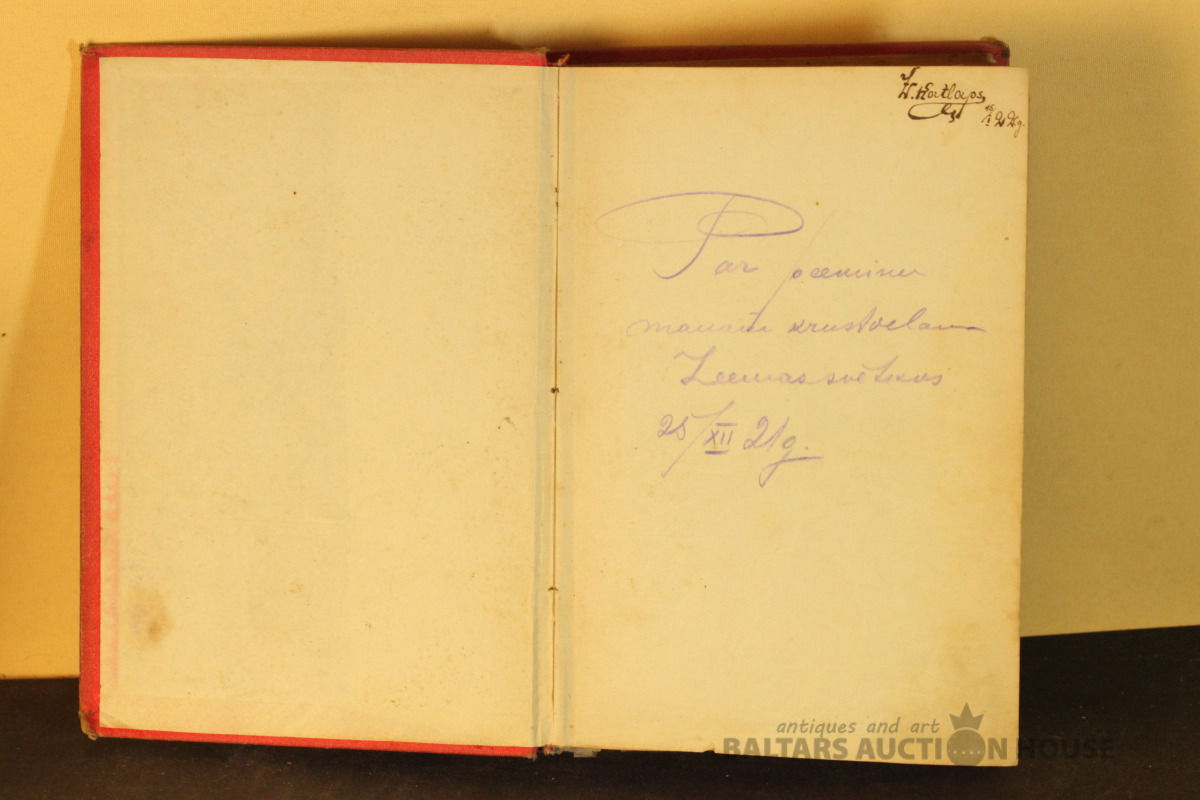 W. Katlaps
Par peeminu
manam krustdelam
Zeemassvētkos
25/XII 21g.
antiques and art
BALTARS AUCTION HOUSE